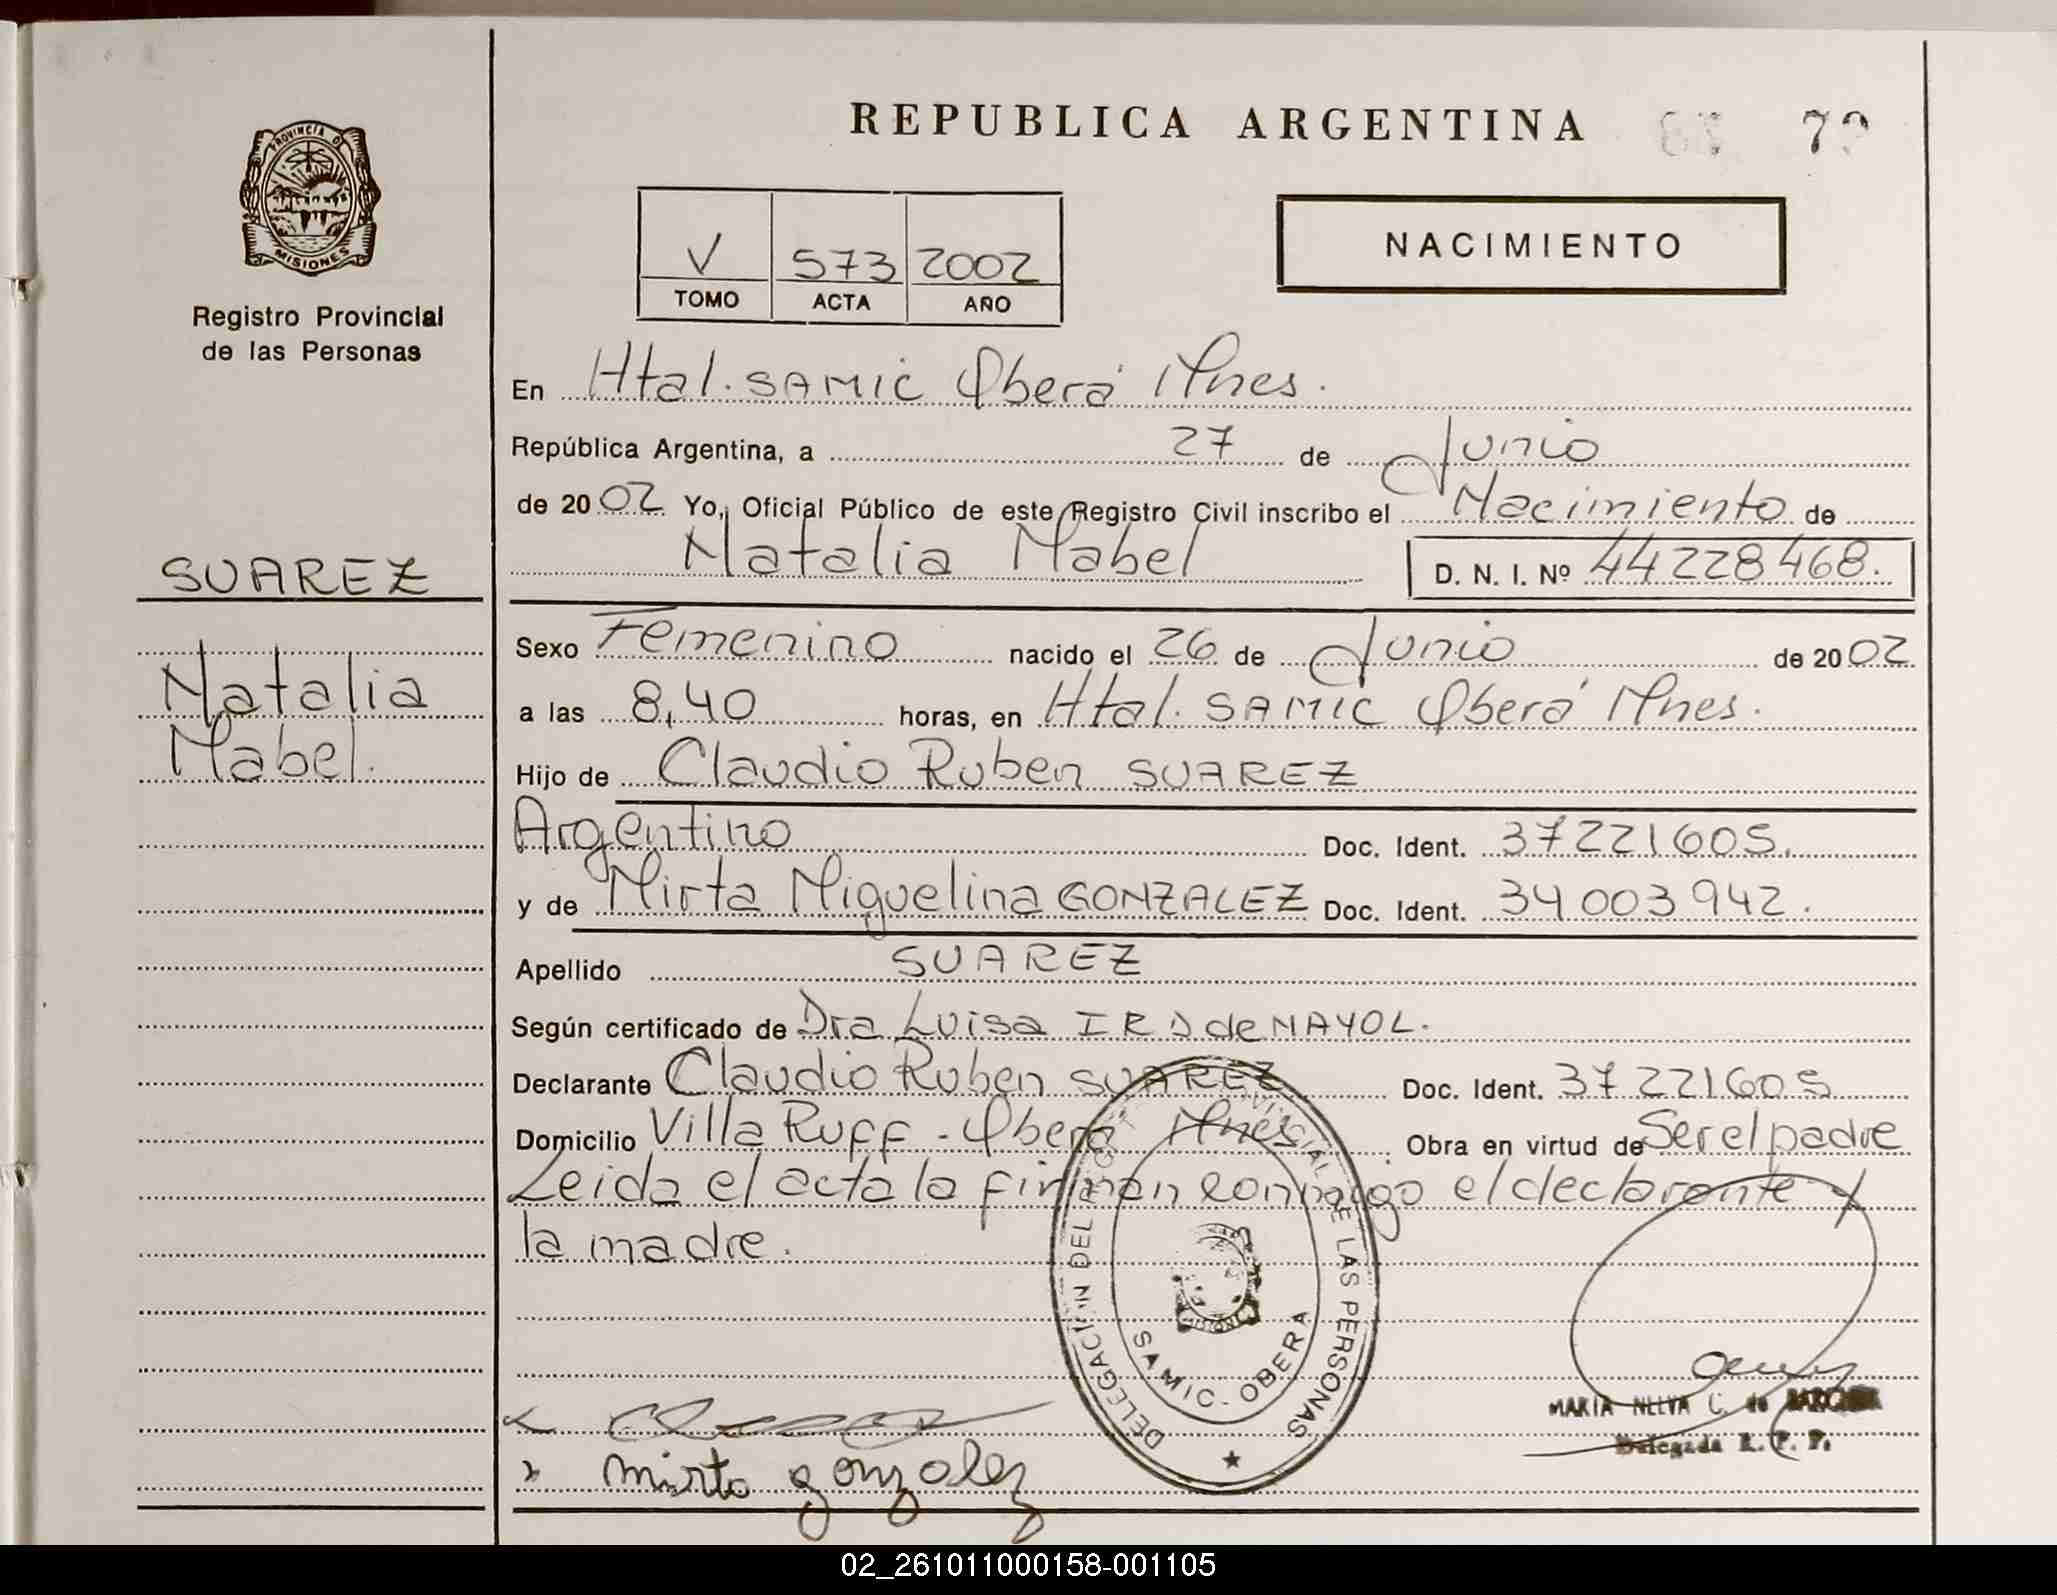 REPUBLICA ARGENTINA
PROVINCIA D
MISIONES
Registro Provincial
de las Personas
V 573 2002
TOMO ACTA AÑO
NACIMIENTO
En Htal. SAMIC Oberá Mnes.
República Argentina, a 27 de Junio
de 2002 Yo, Oficial Público de este Registro Civil inscribo el Nacimiento de
Natalia Mabel D. N. I. Nº 44228468.
SUAREZ
Natalia
Mabel.
Sexo Femenino nacido el 26 de Junio de 2002
a las 8,40 horas, en Htal. SAMIC Oberá Mnes.
Hijo de Claudio Ruben SUAREZ
Argentino Doc. Ident. 37221605.
y de Mirta Miguelina GONZALEZ Doc. Ident. 34 003 942.
Apellido SUAREZ
Según certificado de Dra Luisa de MAYOL.
Declarante Claudio Ruben SUAREZ Doc. Ident. 37 221605
Domicilio Villa Ruff - Oberá Mnes Obra en virtud de Ser el padre
Leida el acta la firman conmigo el declarante y
la madre.
DELEGACION DEL REGISTRO PROVINCIAL DE LAS PERSONAS
SAMIC - OBERA
MARIA NELVA C. de
Delegada R. P. P.
mirta gonzalez
02_261011000158-001105